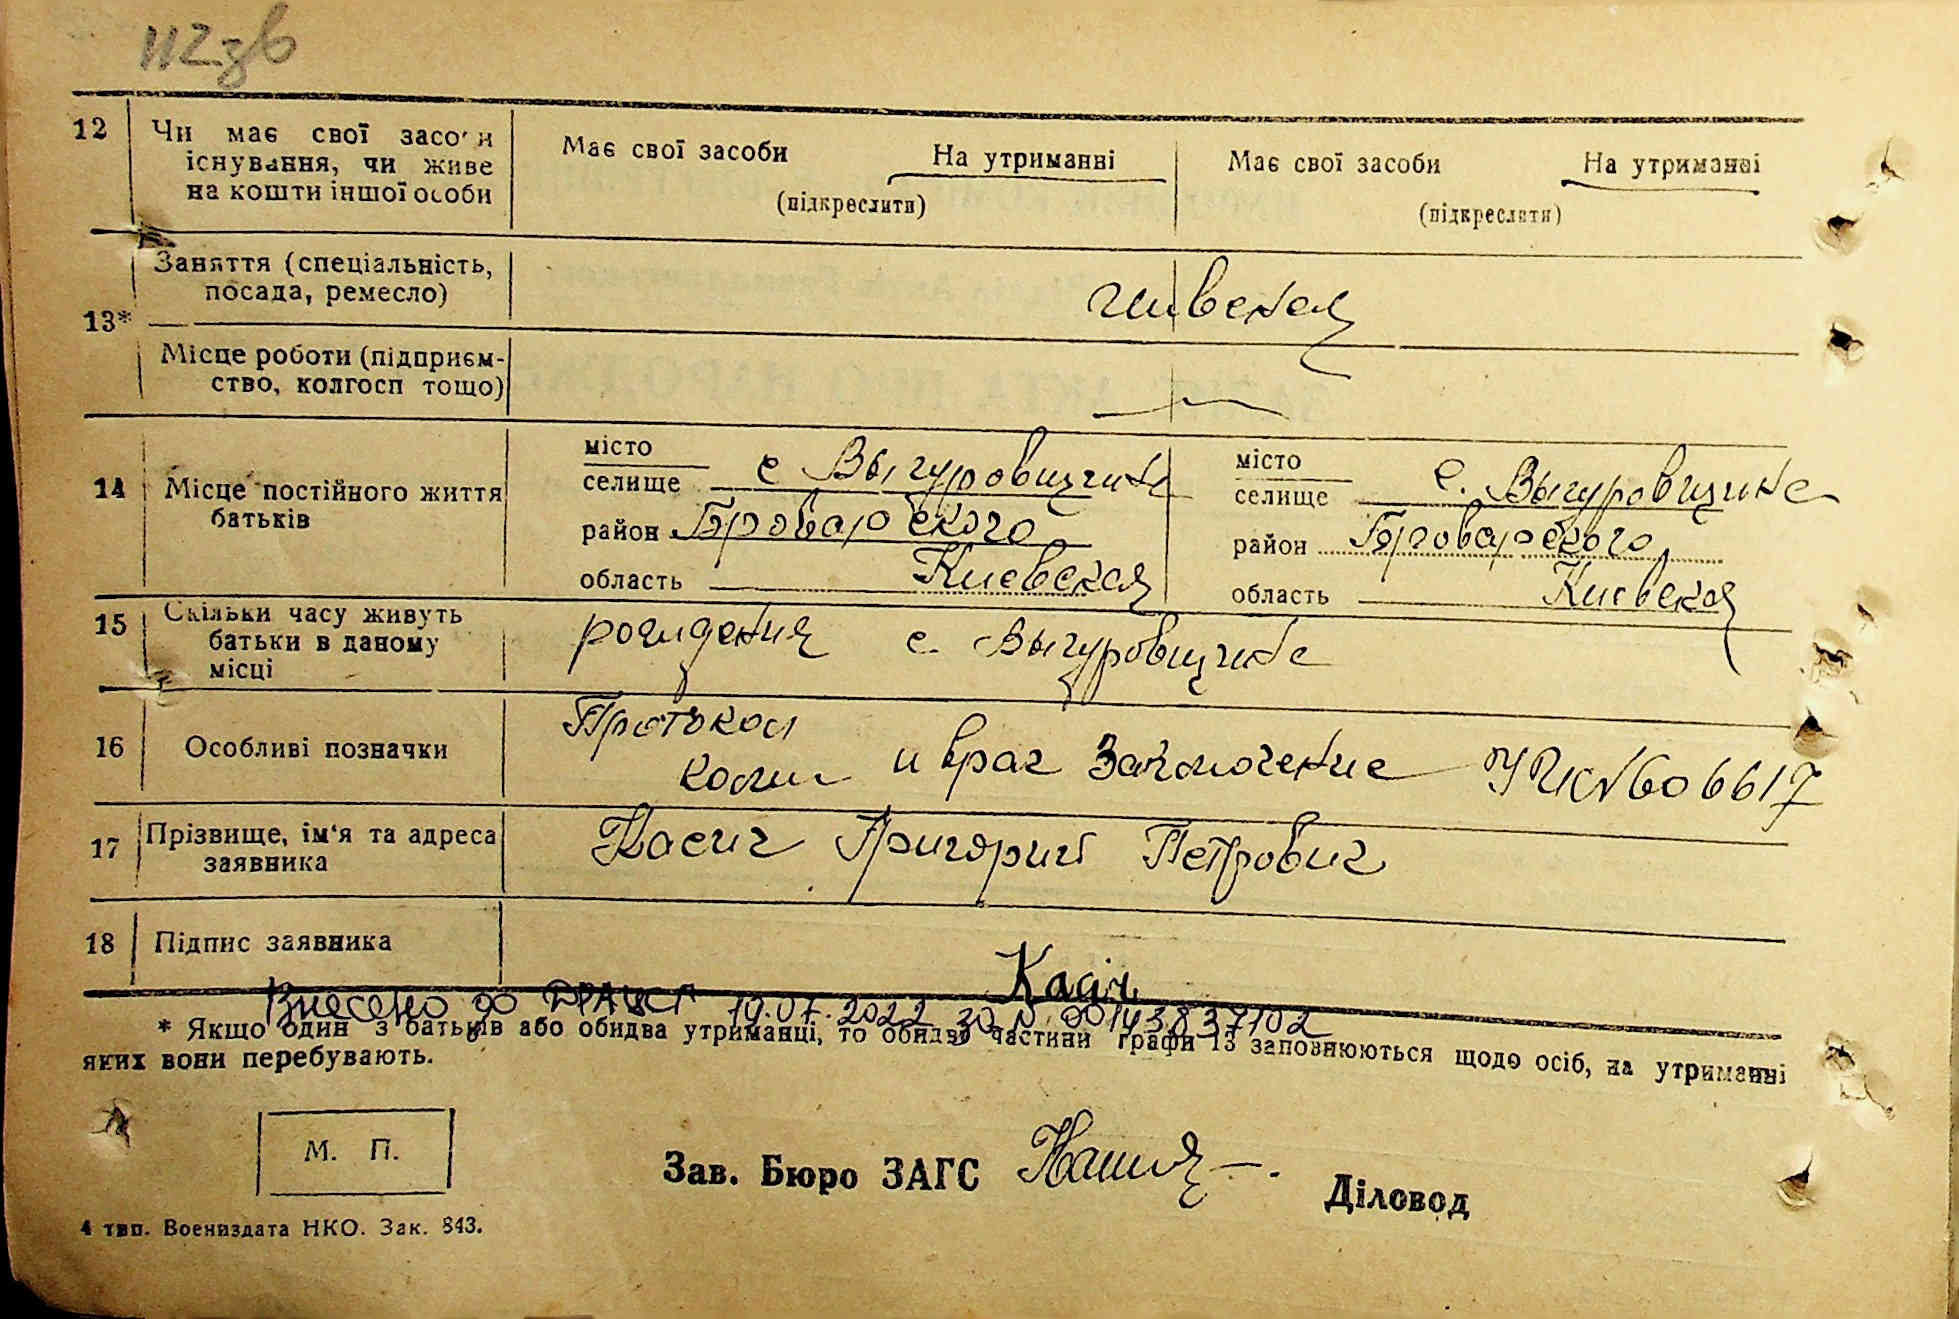 112 зв
12
Чи має свої засоби
існування, чи живе
на кошти іншої особи
Має свої засоби На утриманні
(підкреслити)
Має свої засоби На утриманні
(підкреслити)
13*
Заняття (спеціальність,
посада, ремесло)
Місце роботи (підприєм-
ство, колгосп тощо)
14
Місце постійного життя
батьків
місто
селище с Выгуровщина
район Броварского
область Киевская
місто
селище с. Выгуровщина
район Броварского
область Киевская
15
Скільки часу живуть
батьки в даному
місці
рождения с. Выгуровщине
16 Особливі позначки
Протокол
и врач Заключение № 606617
17
Прізвище, ім'я та адреса
заявника
Касич Григорий Петрович
18 Підпис заявника
Касіч
Внесено до ДРАЦСГ 19.07.2022 за № 00143837102
* Якщо один з батьків або обидва утриманці, то обидві частини графи 13 заповнюються щодо осіб, на утриманні
яких вони перебувають.
М. П.
Зав. Бюро ЗАГС
Діловод
4 тип. Воениздата НКО. Зак. 843.